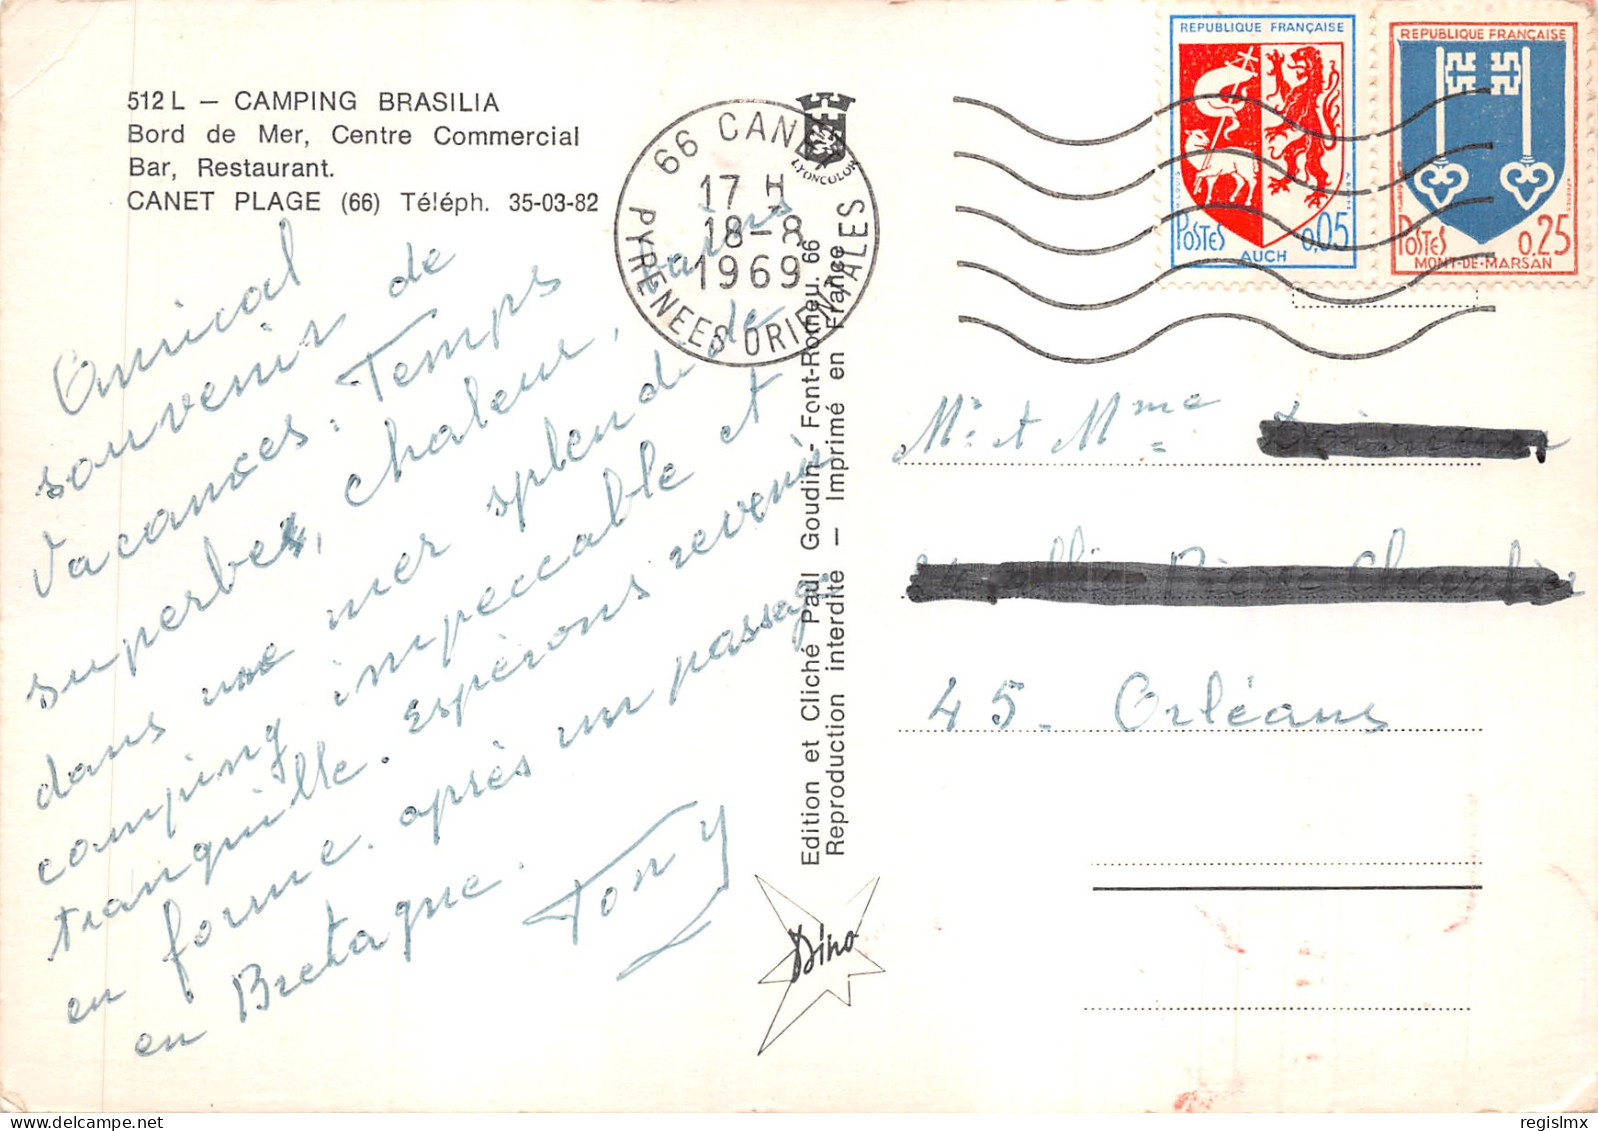 512 L – CAMPING BRASILIA
Bord de Mer, Centre Commercial
Bar, Restaurant.
CANET PLAGE (66) Téléph. 35-03-82
Amical
souvenir de
Vacances. Temps
superbe, chaleur, bains
dans une mer splendide de
camping impeccable et
tranquille. espérons revenir
en forme. après un passage
en Bretagne.
Tony
66 CANET
17 H
18-8
1969
PYRENEES ORIENTALES
LYONCOLOR
Edition et Cliché Paul Goudin - Font-Romeu. 66
Reproduction interdite — Imprimé en France
Dino
REPUBLIQUE FRANÇAISE
POSTES 0,05
AUCH
REPUBLIQUE FRANÇAISE
POSTES 0,25
MONT-DE-MARSAN
Mr et Mme
45 - Orléans
regislmx